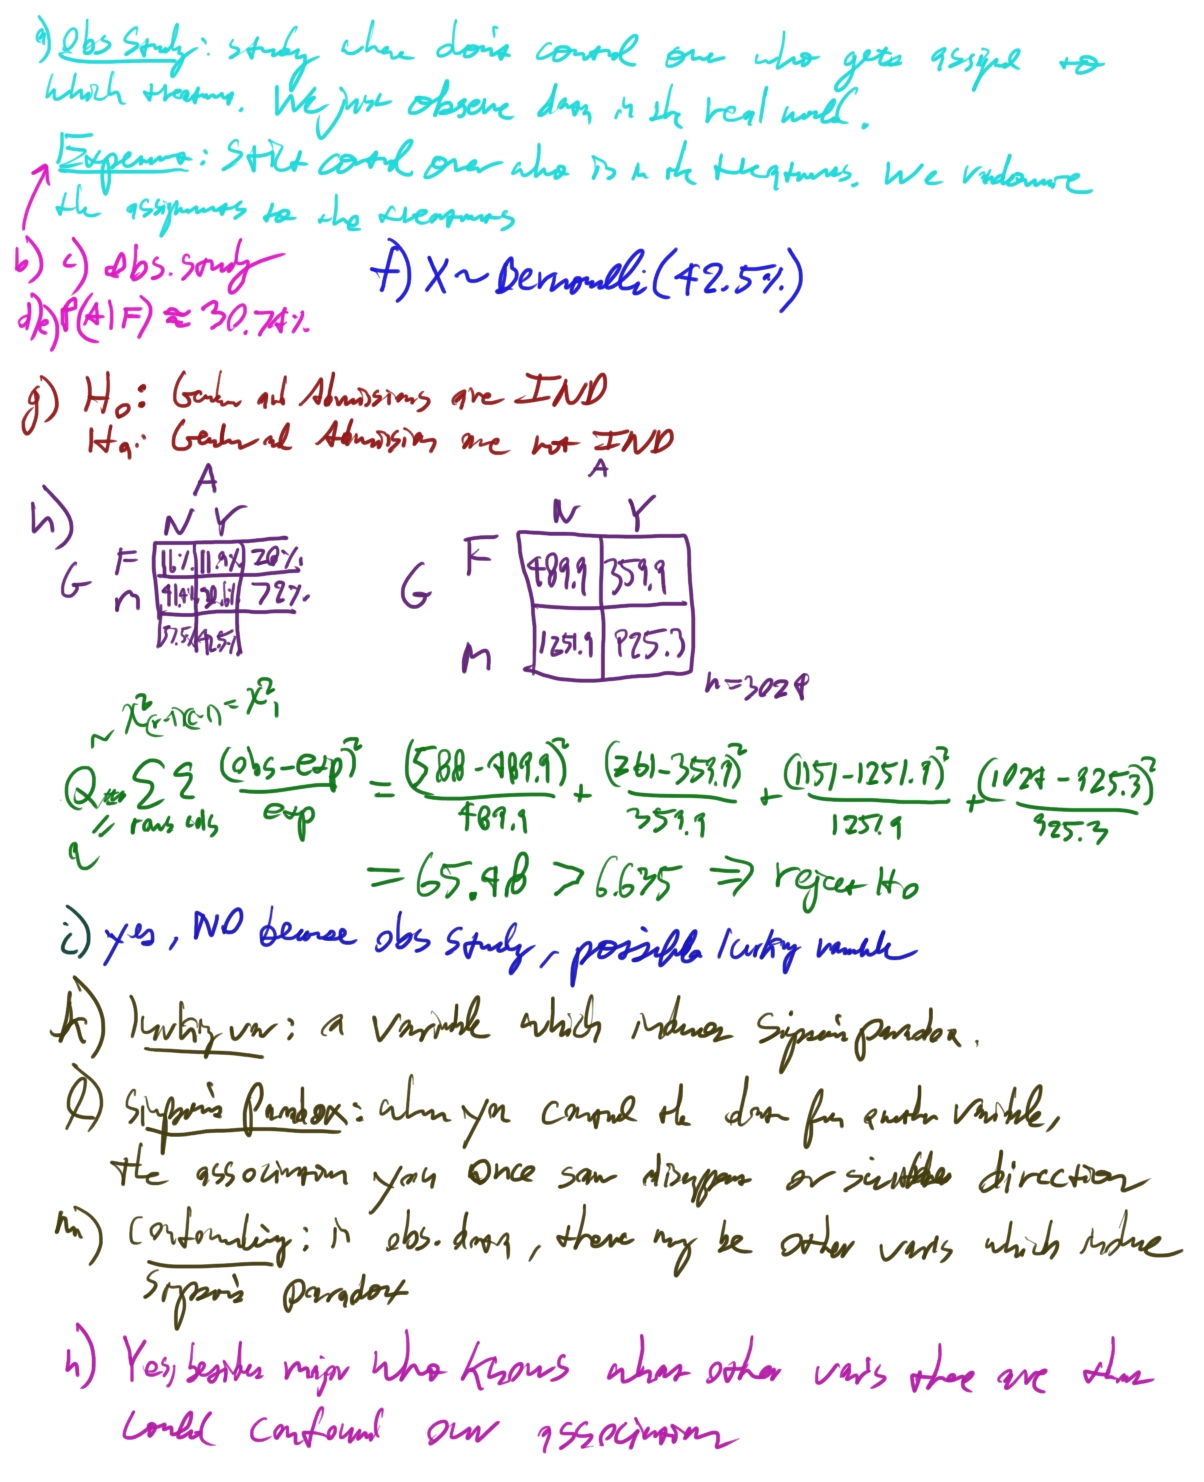 a) Obs Study: study where don't control over who gets assigned to
which treatment. We just observe data in the real world.
Experiment: Strict control over who is in the treatments. We randomize
the assignments to the treatments
b) c) Obs. study
f) X ~ Bernoulli (42.5%)
d) e) P(A|F) ≈ 30.74%
g) H₀: Gender and Admissions are IND
Hₐ: Gender and Admission are not IND
h)
A
N Y
G
F 16% 11.9% 28%
M 41.4% 30.6% 72%
57.5% 42.5%
A
N Y
G
F 489.9 359.9
M 1251.9 925.3
n=3024
~ χ²(r-1)(c-1) = χ²₁
Q = ΣΣ (obs-exp)²/exp = (588-489.9)²/489.9 + (261-359.9)²/359.9 + (1151-1251.9)²/1251.9 + (1024-925.3)²/925.3
rows cols
= 65.48 > 6.635 ⇒ reject H₀
i) yes, NO because obs study, possible lurking variable
k) lurking var: a variable which induces Simpson's paradox.
l) Simpson's Paradox: when you control the data for another variable,
the association you once saw disappears or direction
m) Confounding: in obs. data, there may be other vars which induce
Simpson's Paradox
n) Yes, besides major who knows what other vars there are that
could confound our association